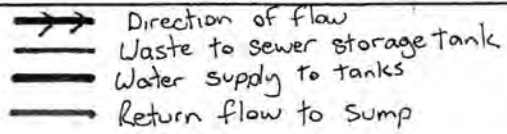 Direction of flow
Waste to sewer storage tank
Water supply to tanks
Return flow to Sump